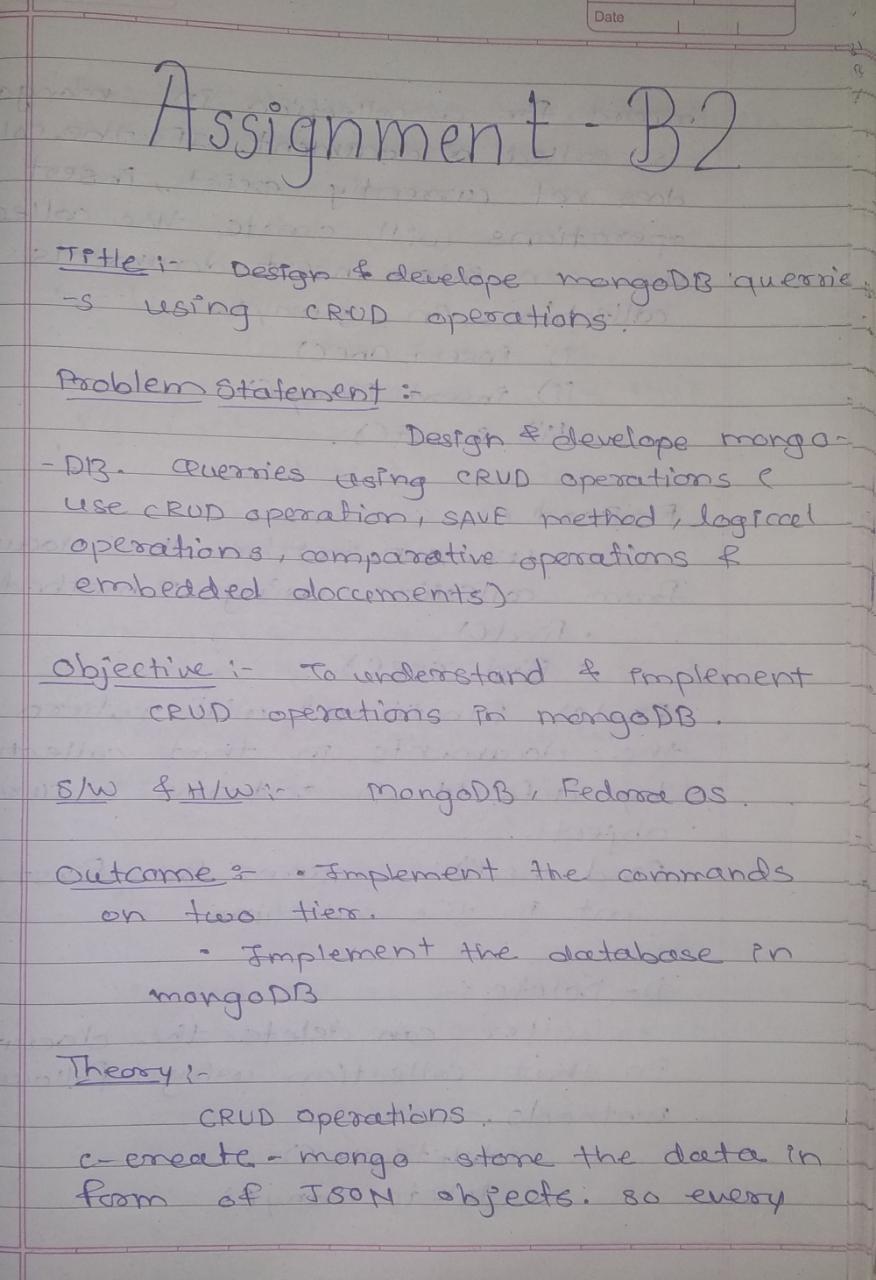 Date
Assignment - B2
Title :- Design & develope mongoDB querrie
-s using CRUD operations.
Problem Statement :-
Design & develope mongo-
-DB. Querries using CRUD operations (
use CRUD operation, SAVE method, logical
operations, comparative operations &
embedded documents)
Objective :- To understand & implement
CRUD operations in mongoDB.
S/W & H/W :- MongoDB, Fedora OS.
Outcome :- • Implement the commands
on two tier.
• Implement the database in
mongoDB
Theory :-
CRUD operations.
c-create - mongo store the data in
form of JSON objects. so every